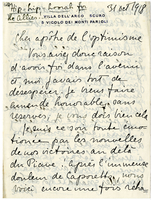 31 oct 1918
VILLA DELL'ARCO SCURO
VICOLO DEI MONTI PARIOLI
Cher apôtre de l'optimisme
Vous aviez donc raison
d'avoir foi dans l'avenir
et moi j'avais tort de
désespérer. Je veux faire
amende honorable, sans
réserves, je vous dois bien cela
Je suis ce soir toute
par les nouvelles
de nos victoires au delà
du Piave: après l'immense
douleur de Caporetto, nous
voici encore une fois